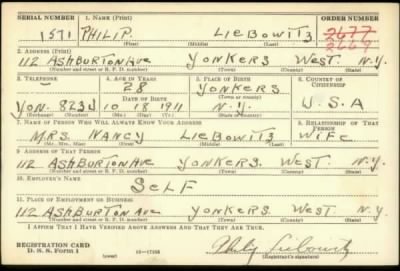 SERIAL NUMBER 1. NAME (Print) ORDER NUMBER
1571 PHILIP LIEBOWITZ 2677
(First) (Middle) (Last) 2669
2. ADDRESS (Print)
112 ASHBURTON AVE YONKERS WEST. N.Y.
(Number and street or R. F. D. number) (Town) (County) (State)
3. TELEPHONE 4. AGE IN YEARS 5. PLACE OF BIRTH 6. COUNTRY OF CITIZENSHIP
28 YONKERS
(Town or county)
DATE OF BIRTH
YON. 823J 10 18 1911 N.Y. U.S.A
(Exchange) (Number) (Mo.) (Day) (Yr.) (State or country)
7. NAME OF PERSON WHO WILL ALWAYS KNOW YOUR ADDRESS 8. RELATIONSHIP OF THAT PERSON
MRS. NANCY LIEBOWITZ WIFE
(Mr., Mrs., Miss) (First) (Middle) (Last)
9. ADDRESS OF THAT PERSON
112 ASHBURTON AVE YONKERS WEST. N.Y.
(Number and street or R. F. D. number) (Town) (County) (State)
10. EMPLOYER'S NAME
SELF
11. PLACE OF EMPLOYMENT OR BUSINESS
112 ASHBURTON AVE YONKERS WEST. N.Y.
(Number and street or R. F. D. number) (Town) (County) (State)
I AFFIRM THAT I HAVE VERIFIED ABOVE ANSWERS AND THAT THEY ARE TRUE.
REGISTRATION CARD
D. S. S. FORM 1 (over) Philip Liebowitz
(Registrant's signature)